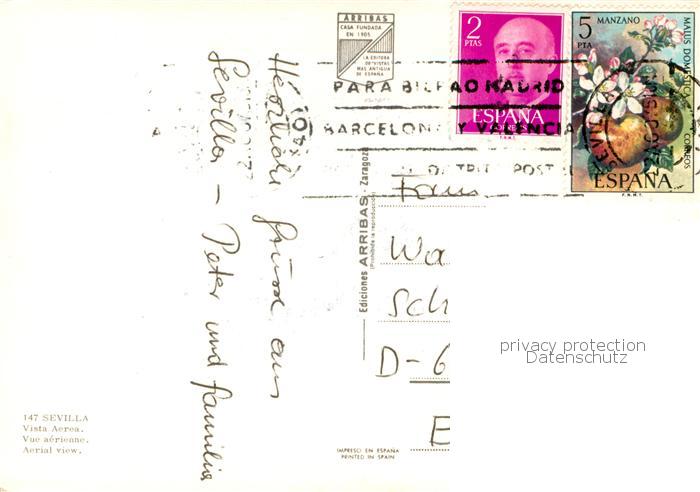 ARRIBAS
CASA FUNDADA
EN 1905
LA EDITORA
DE VISTAS
MAS ANTIGUA
DE ESPAÑA
2
PTAS
ESPAÑA
CORREOS
F.N.M.T.
5
PTA
MANZANO
MALUS DOMESTICA
CORREOS
ESPAÑA
F.N.M.T.
PARA BILBAO MADRID
BARCELONA Y VALENCIA
POST
SEVILLA
Herzliche Grüsse aus
Sevilla – Peter und Familie
Ediciones ARRIBAS - Zaragoza
(Prohibida la reproducción)
Fam
Wa
Sch
D-6
E
privacy protection
Datenschutz
147 SEVILLA
Vista Aerea.
Vue aérienne.
Aerial view.
IMPRESO EN ESPAÑA
PRINTED IN SPAIN